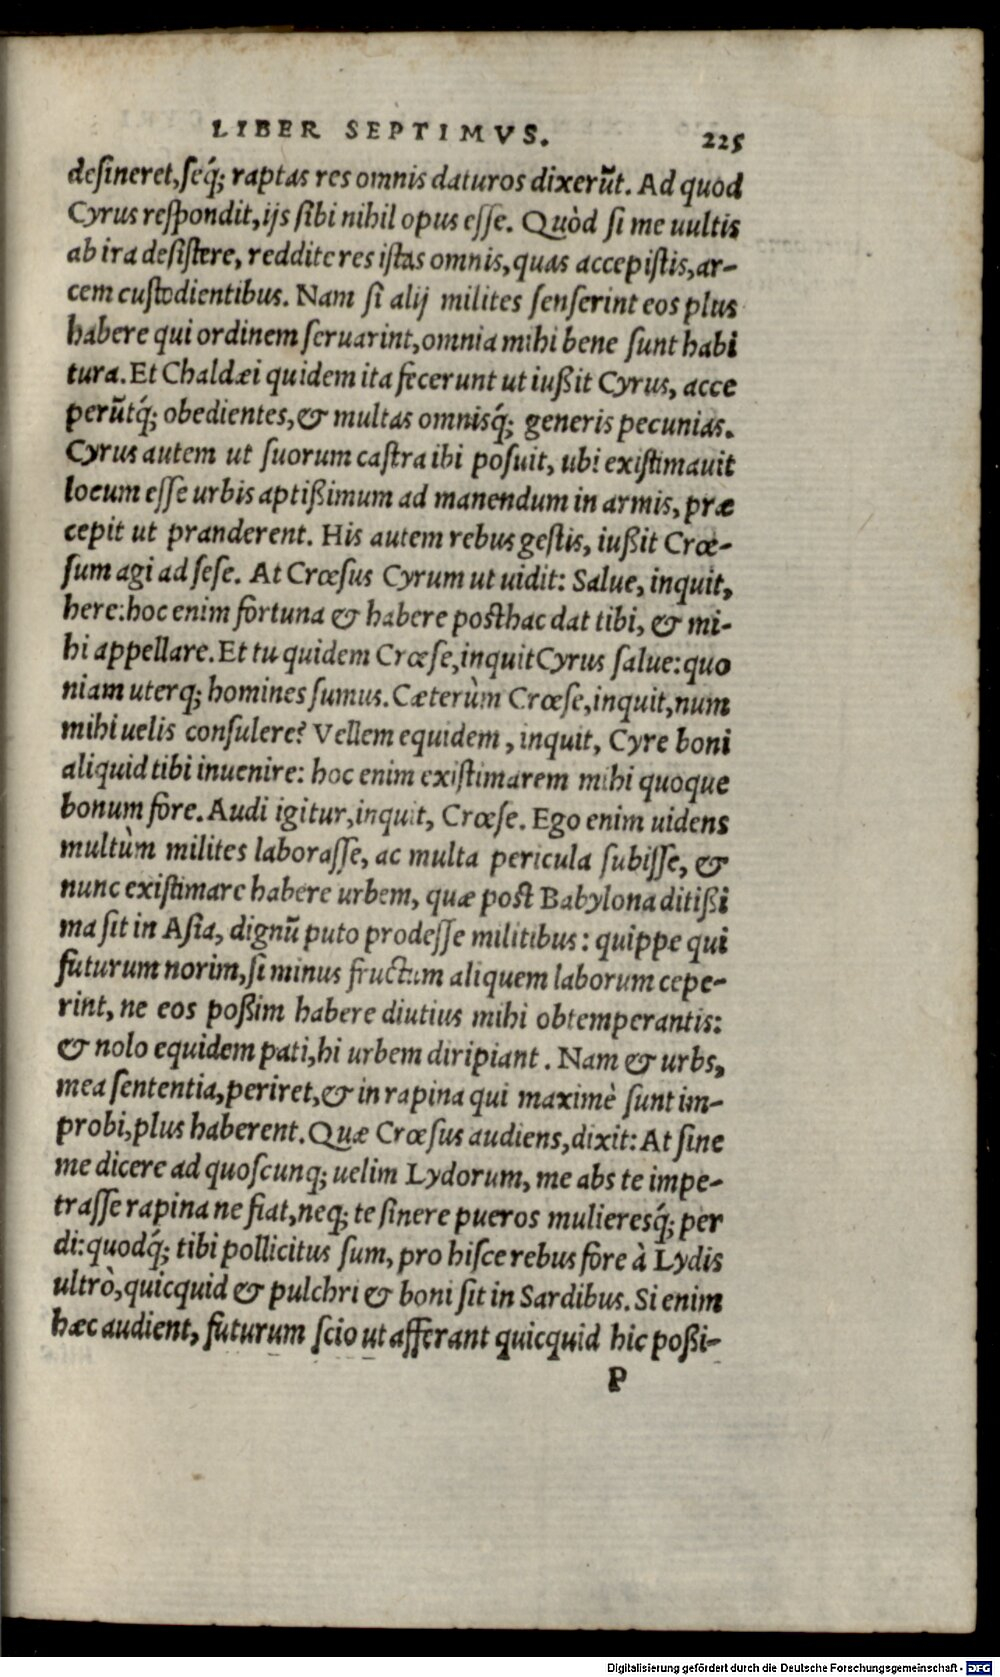 LIBER SEPTIMVS. 225
desineret, seq́; raptas res omnis daturos dixerũt. Ad quod
Cyrus respondit, ijs sibi nihil opus esse. Quòd si me uultis
ab ira desistere, reddite res istas omnis, quas accepistis, ar-
cem custodientibus. Nam si alij milites senserint eos plus
habere qui ordinem seruarint, omnia mihi bene sunt habi
tura. Et Chaldæi quidem ita fecerunt ut iußit Cyrus, acce
perũtq́; obedientes, & multas omnisq́; generis pecunias.
Cyrus autem ut suorum castra ibi posuit, ubi existimauit
locum esse urbis aptißimum ad manendum in armis, præ
cepit ut pranderent. His autem rebus gestis, iußit Crœ-
sum agi ad sese. At Crœsus Cyrum ut uidit: Salue, inquit,
here: hoc enim fortuna & habere posthac dat tibi, & mi-
hi appellare. Et tu quidem Crœse, inquit Cyrus salue: quo
niam uterq; homines sumus. Cæterùm Crœse, inquit, num
mihi uelis consulere? Vellem equidem, inquit, Cyre boni
aliquid tibi inuenire: hoc enim existimarem mihi quoque
bonum fore. Audi igitur, inquit, Crœse. Ego enim uidens
multùm milites laborasse, ac multa pericula subisse, &
nunc existimare habere urbem, quæ post Babylona ditißi
ma sit in Asia, dignũ puto prodesse militibus: quippe qui
futurum norim, si minus fructum aliquem laborum cepe-
rint, ne eos poßim habere diutius mihi obtemperantis:
& nolo equidem pati, hi urbem diripiant. Nam & urbs,
mea sententia, periret, & in rapina qui maximè sunt im-
probi, plus haberent. Quæ Crœsus audiens, dixit: At sine
me dicere ad quoscunq; uelim Lydorum, me abs te impe-
trasse rapina ne fiat, neq; te sinere pueros mulieresq́; per
di: quodq́; tibi pollicitus sum, pro hisce rebus fore à Lydis
ultrò, quicquid & pulchri & boni sit in Sardibus. Si enim
hæc audient, futurum scio ut afferant quicquid hic poßi-
P
Digitalisierung gefördert durch die Deutsche Forschungsgemeinschaft - DFG